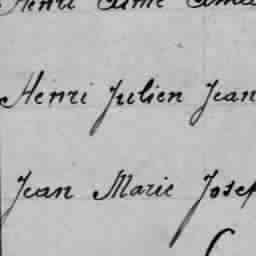 Henri Aimé
Henri Julien Jean
Jean Marie Josep